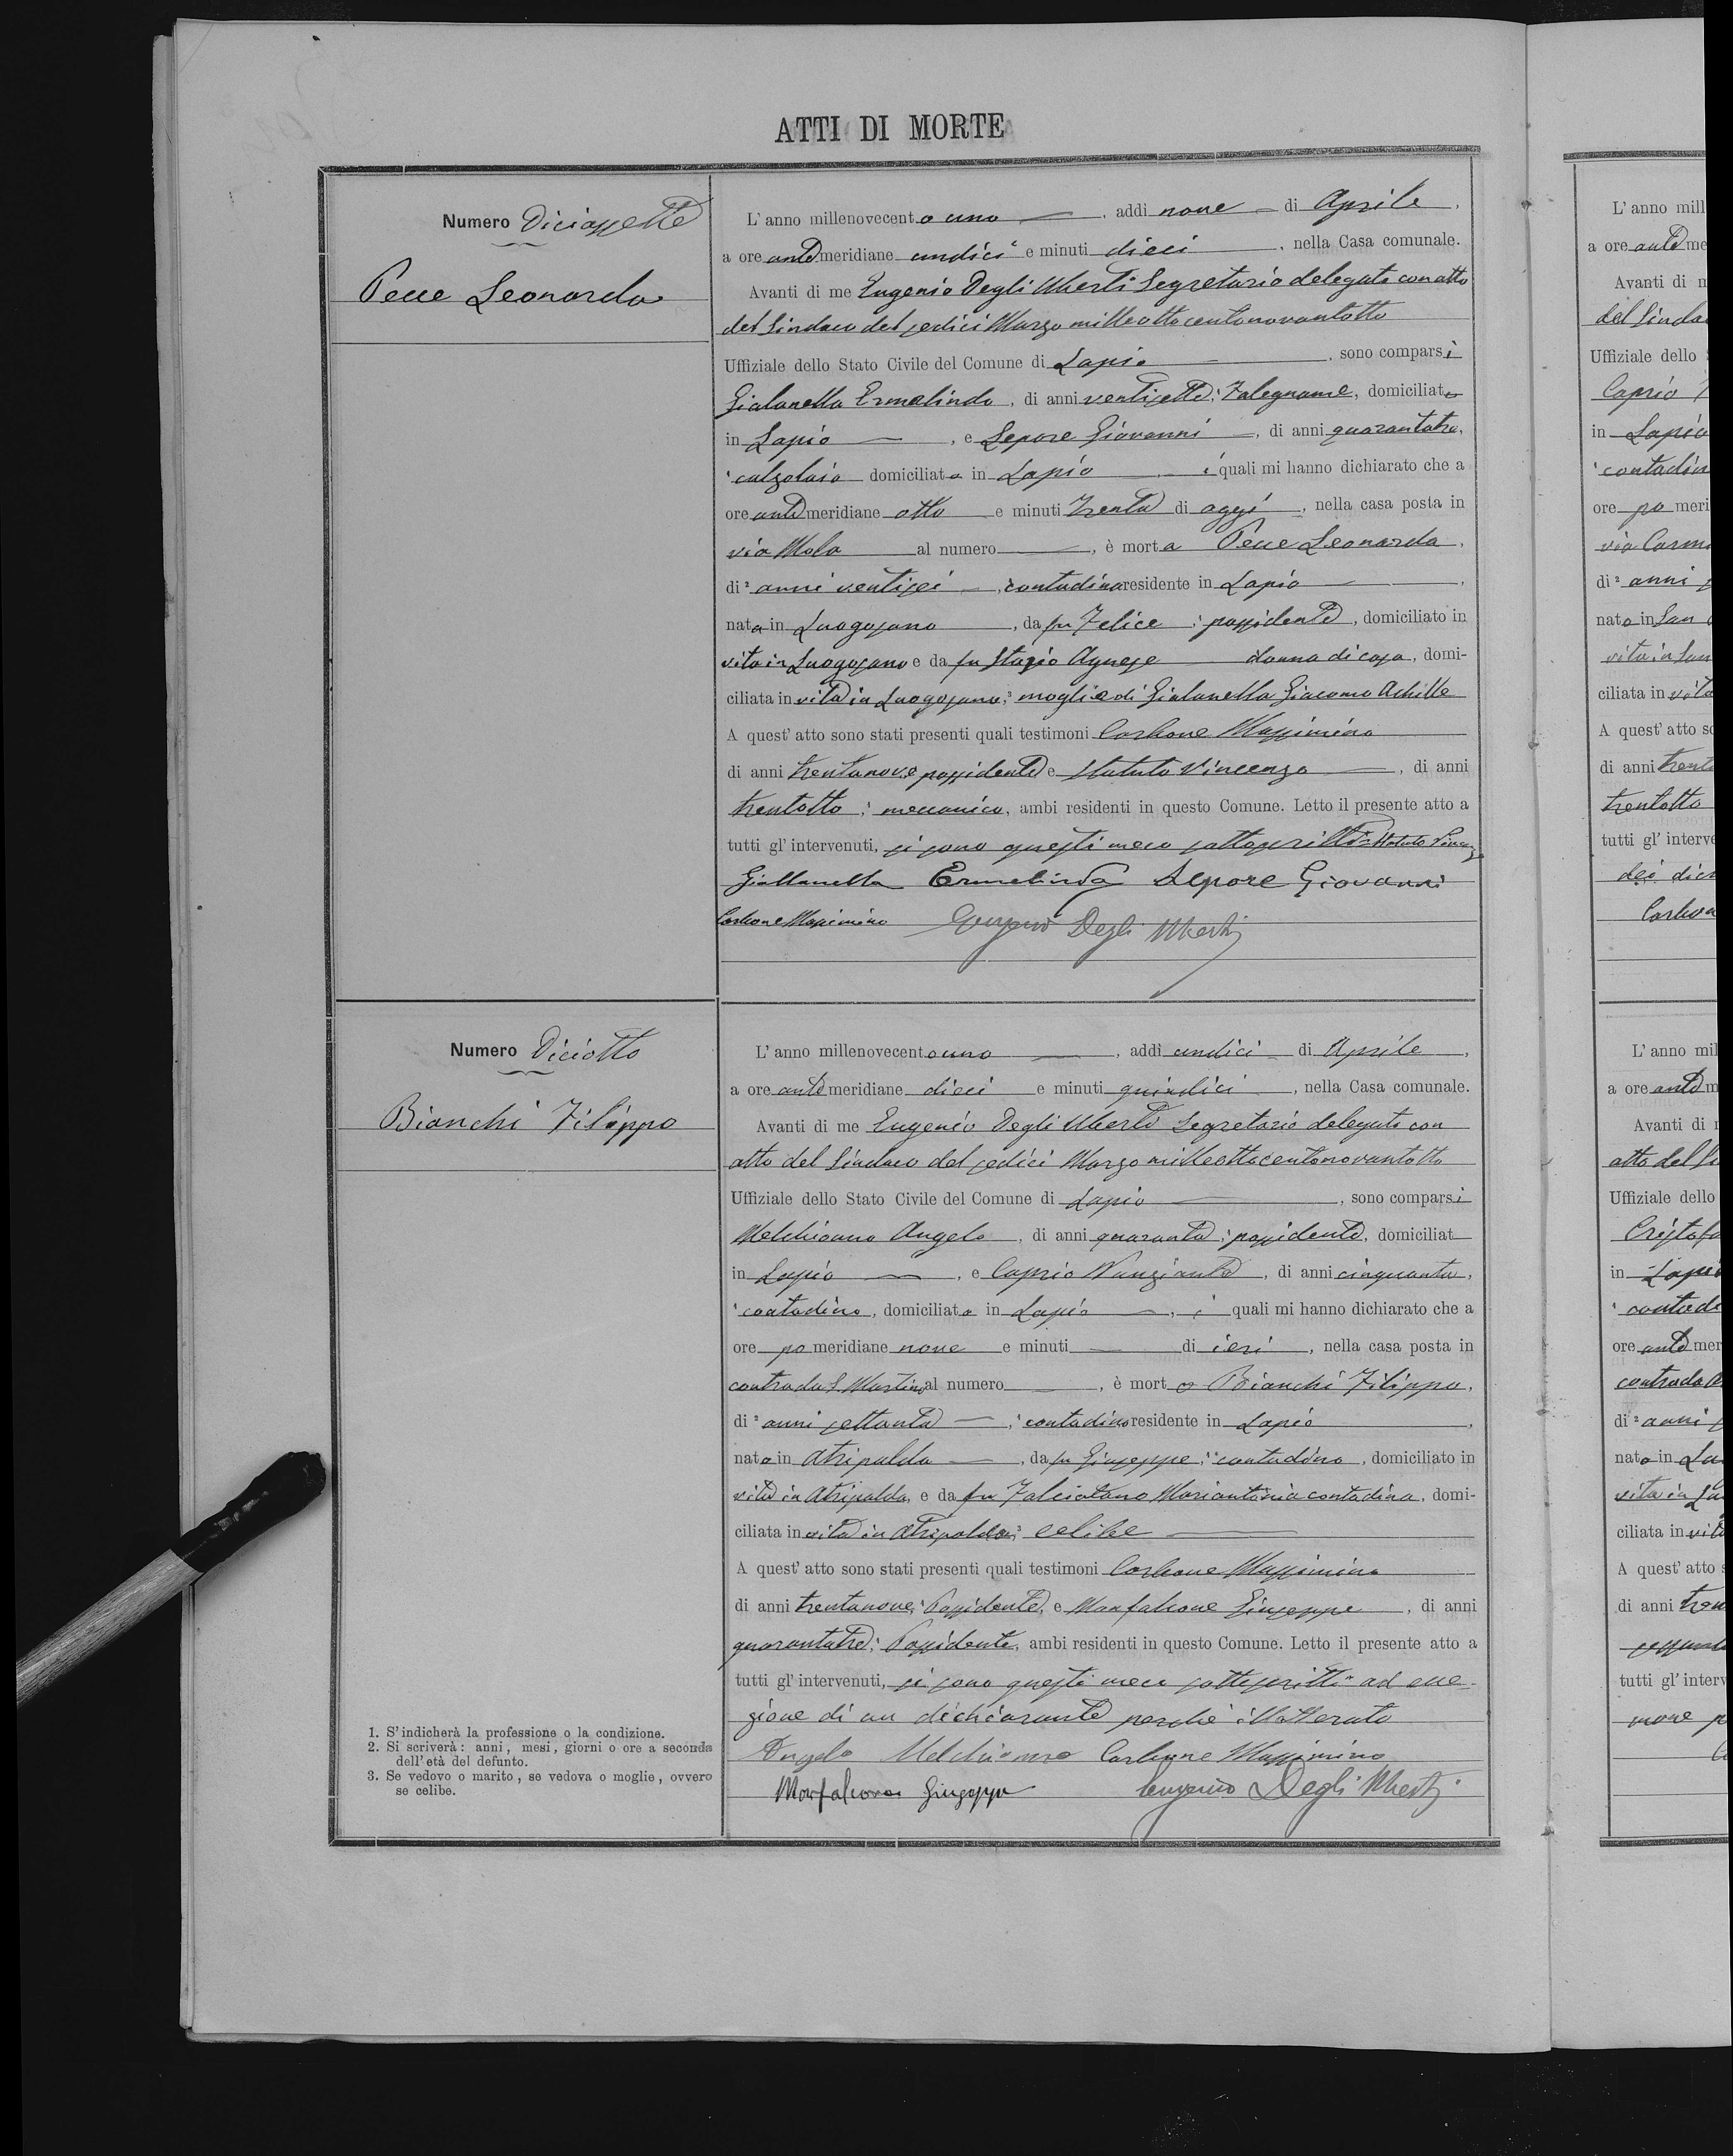 ATTI DI MORTE
Numero Diciassette
Pecce Leonarda
L'anno millenovecento uno, addi nove di Aprile,
a ore antemeridiane undici e minuti dieci, nella Casa comunale.
Avanti di me Eugenio Degli Uberti Segretario delegato con atto
del Sindaco del sedici Marzo milleottocentonovantotto
Uffiziale dello Stato Civile del Comune di Lapio, sono comparsi
Gialanella Ermelindo, di anni ventisette, Falegname, domiciliato
in Lapio, e Lepore Giovanni, di anni quarantatre,
calzolaio domiciliato in Lapio, i quali mi hanno dichiarato che a
ore antemeridiane otto e minuti trenta di oggi, nella casa posta in
via Mola al numero, è morta Pecce Leonarda,
di² anni ventisei, contadina residente in Lapio,
nata in Luogosano, da fu Felice, possidente, domiciliato in
vita in Luogosano e da fu Stasio Agnese donna di casa, domi-
ciliata in vita in Luogosano,³ moglie di Gialanella Giacomo Achille
A quest'atto sono stati presenti quali testimoni Carbone Massimino
di anni trentanove possidente e Statuto Vincenzo, di anni
trentotto, meccanico, ambi residenti in questo Comune. Letto il presente atto a
tutti gl'intervenuti, si sono questi meco sottoscritti = Statuto
Giallanella Ermelindo Lepore Giovanni
Carbone Massimino Eugenio Degli Uberti
Numero Diciotto
Bianchi Filippo
L'anno millenovecentouno, addi undici di Aprile,
a ore antemeridiane dieci e minuti quindici, nella Casa comunale.
Avanti di me Eugenio Degli Uberti Segretario delegato con
atto del Sindaco del sedici Marzo milleottocentonovantotto
Uffiziale dello Stato Civile del Comune di Lapio, sono comparsi
Melchionno Angelo, di anni quaranta, possidente, domiciliat
in Lapio, e Caprio Nunziante, di anni cinquanta,
contadino, domiciliato in Lapio, i quali mi hanno dichiarato che a
ore pomeridiane nove e minuti di ieri, nella casa posta in
contrada S Martino al numero, è morto Bianchi Filippo,
di² anni settanta, contadino residente in Lapio,
nato in Atripalda, da fu Giuseppe, contadino, domiciliato in
vita in Atripalda, e da fu Falciatano Mariantonia contadina, domi-
ciliata in vita in Atripalda,³ celibe
A quest'atto sono stati presenti quali testimoni Carbone Massimino
di anni trentanove, Possidente, e Monfalcone Giuseppe, di anni
quarantatre, Possidente, ambi residenti in questo Comune. Letto il presente atto a
tutti gl'intervenuti, si sono questi meco sottoscritti ad ecce-
zione di un dichiarante perchè illetterato
Angelo Melchionno Carbone Massimino
Monfalcone Giuseppe Eugenio Degli Uberti
1. S'indicherà la professione o la condizione.
2. Si scriverà: anni, mesi, giorni o ore a seconda
dell'età del defunto.
3. Se vedovo o marito, se vedova o moglie, ovvero
se celibe.
L'anno mill
a ore ante me
Avanti di m
del Sinda
Uffiziale dello
Caprio
in Lapio
contadin
ore po meri
via Carm
di² anni
nato in San
vita in San
ciliata in vita
A quest'atto so
di anni trent
trentotto
tutti gl'interve
dei dich
Carbon
L'anno mil
a ore ante m
Avanti di
atto del Si
Uffiziale dello
Cristofa
in Lapio
contad
ore ante mer
contrada
di² anni
nato in Lu
vita in La
ciliata in vit
A quest'atto
di anni tren
tutti gl'interv